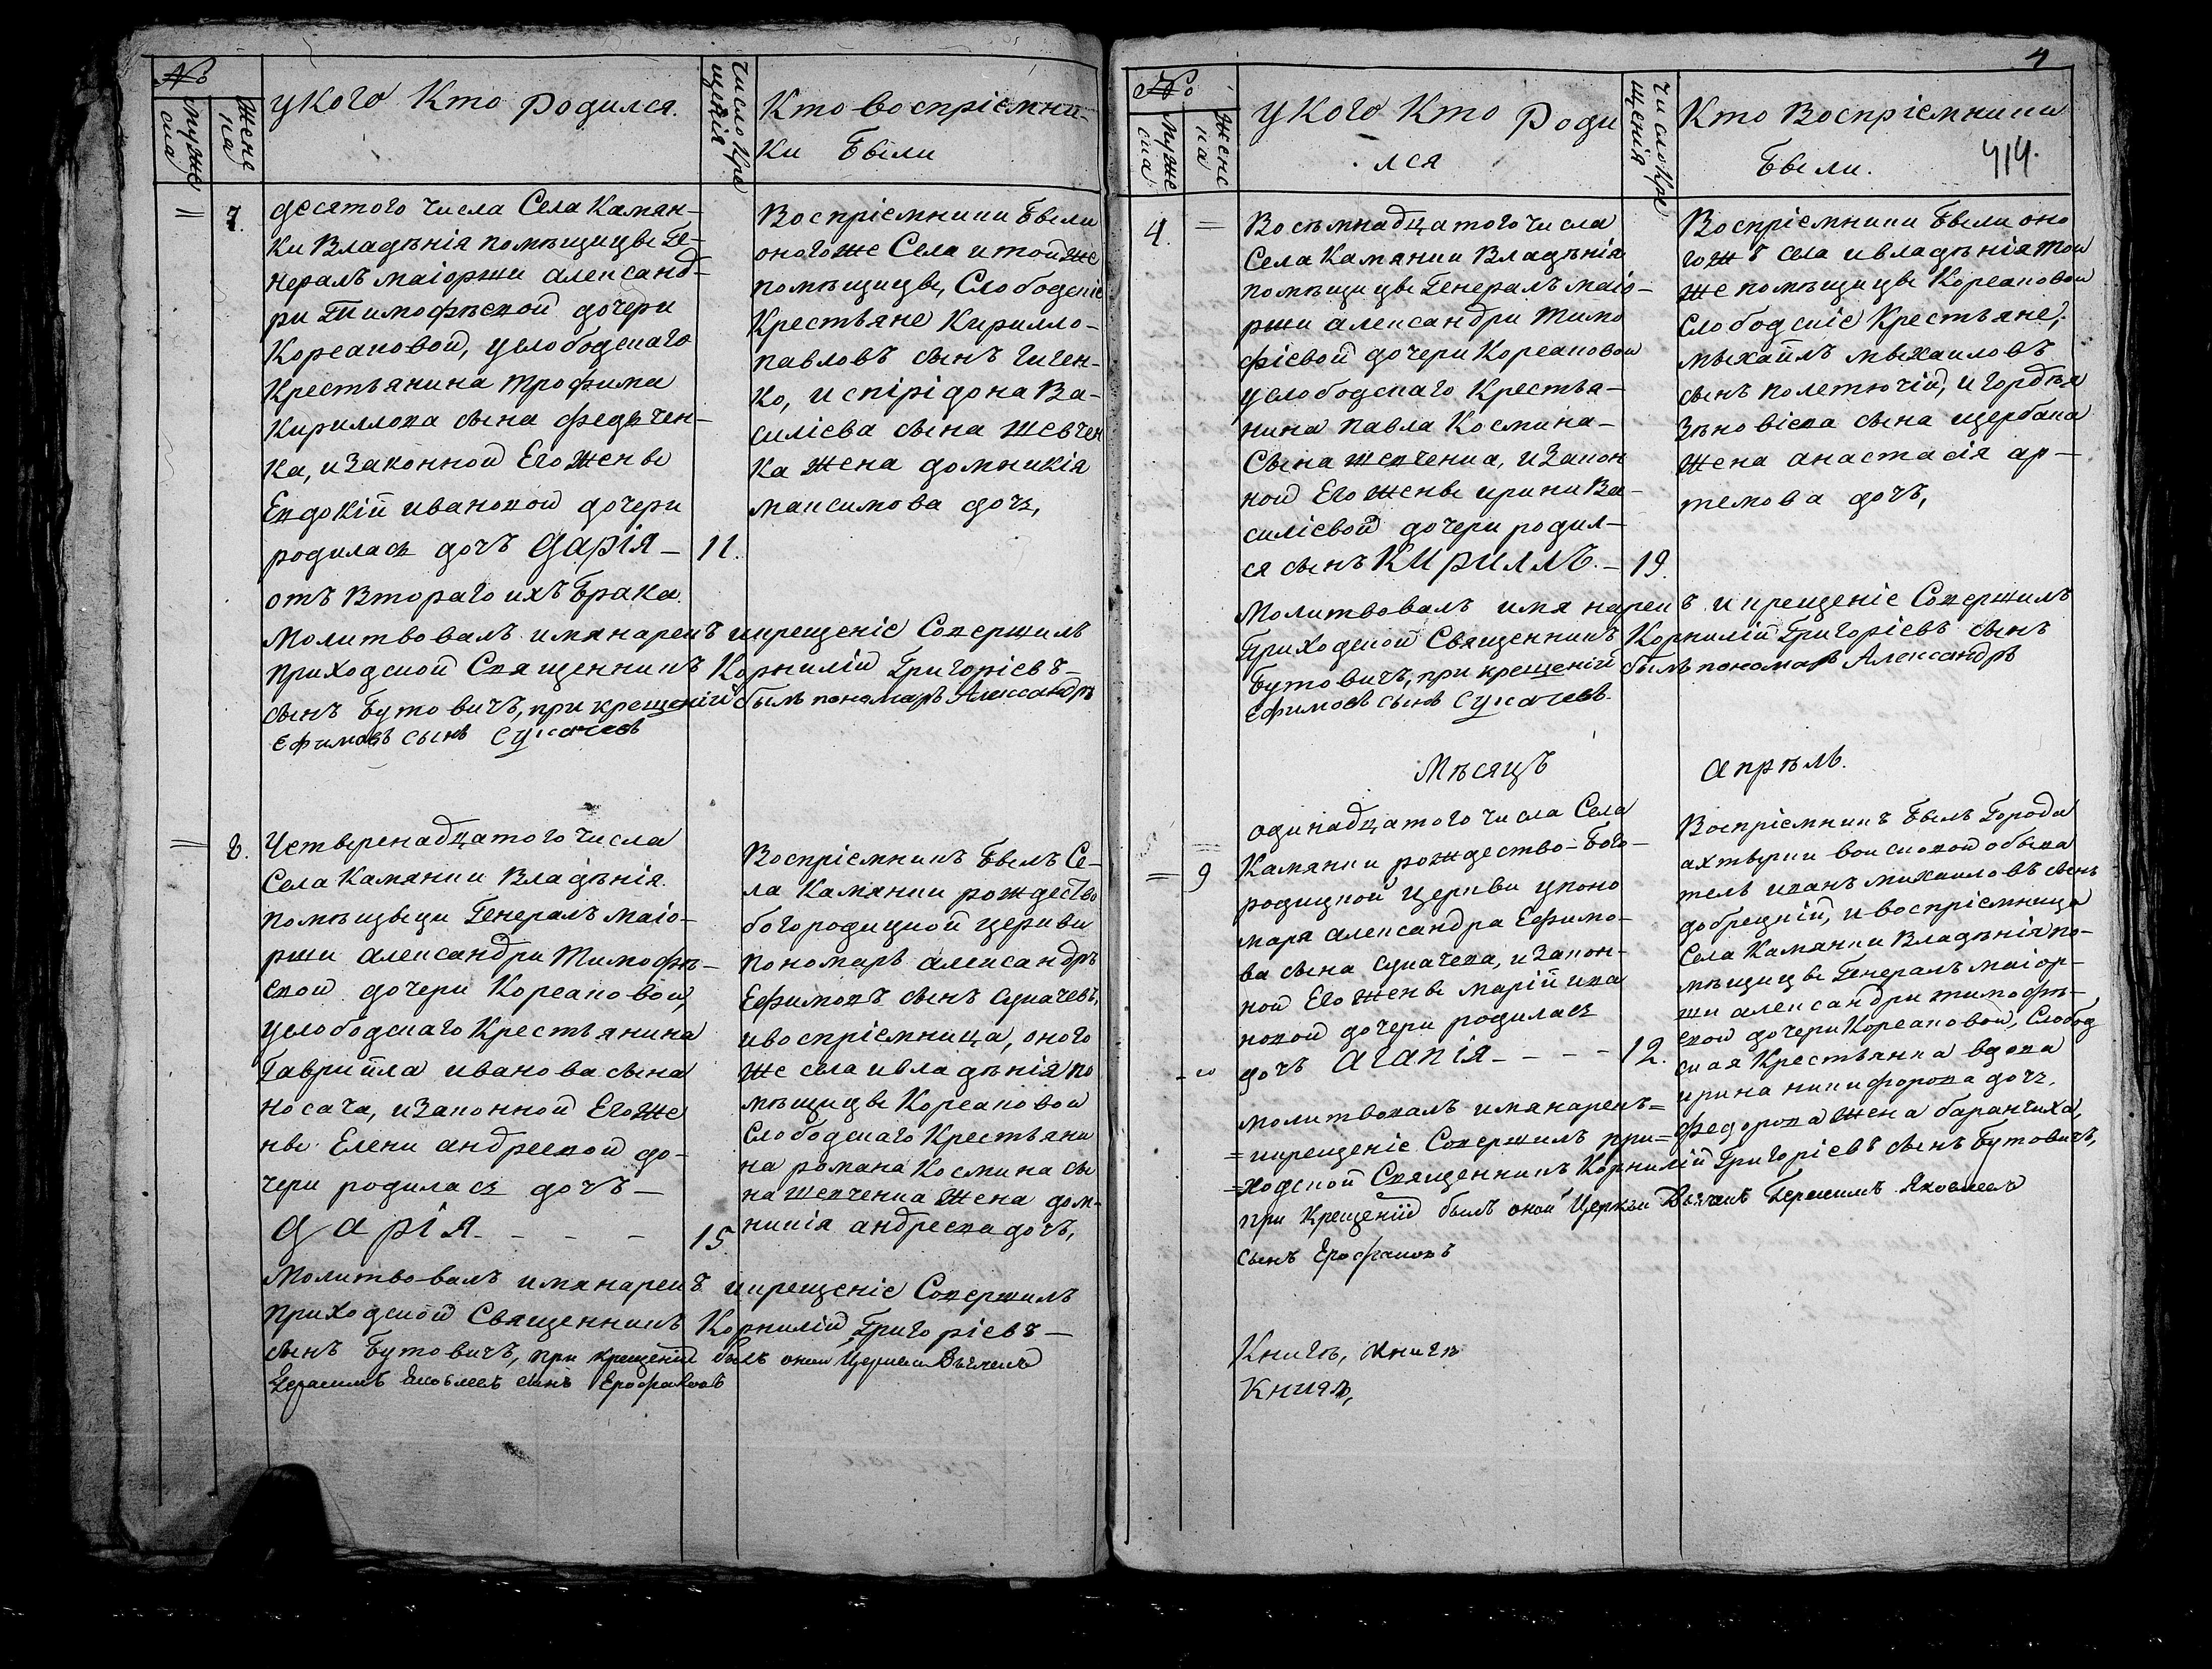 №
Мужеска
Женска
У Кого Кто Родился.
Число Крещенія
Кто воспріемни-
ки Были
=
7.
десятого числа Села Камян-
ки Владѣнія помѣщицы Ге-
нералъ маіорши александ-
ри Тимофѣевой дочери
Корсаковой, услободскаго
Крестьянина трофима
Кириллова сына федченк-
ка, и Законной Его Жены
Евдокіи ивановой дочери
родилась дочъ Дарія —
отъ Втораго ихъ Брака.
11.
Воспріемники Были
оного же Села и той же
помѣщицы, Слободские
Крестьяне Кирилло-
павловъ сынъ Гиген-
ко, и спірідона Ва-
силіева сына шевчен
ка Жена домникія
максимова дочъ,
Молитвовалъ имя нарекъ и крещеніе Совершилъ
приходской Священникъ Корнилій Григорієвъ —
сынъ Бутовичъ, при крещеніи былъ пономаръ Александръ
Ефимовъ сынъ Сукачевъ
=
8.
Четверенадцатого числа
Села Камянки Владѣнія
помѣщыци Генералъ маіо-
рши александри Тимофѣ-
евой дочери Корсаковой,
услободскаго Крестьянина
Гавриила иванова сына
носача, и Законной Его Же
ны Елени андреевой до-
чери родилась дочъ —
Дарія - - - -
15.
Воспріемникъ Былъ Се-
ла Камянки рождество
богородицкой церкви
пономаръ александръ
Ефимовъ сынъ Сукачевъ,
и воспріемница, оного
же села и владѣнія по
мѣщицы Корсаковой
Слободскаго Крестьяни
на романа Космина сы
на шевченка Жена дом-
никія андреева дочъ,
Молитвовалъ имя нарекъ и крещеніе Совершилъ
приходской Священникъ Корнилій Григорієвъ —
сынъ Бутовичъ, при крещеніи былъ оной Церкви Дьячекъ
Герасимъ Яковлевъ сынъ Ерофаловъ
4
№
Мужеска
Женска
У Кого Кто Роди
лся
Число Крещенія
Кто Воспріемники
Были.
414.
4.
=
Восѣмнадцатого числа
Села Камянки Владѣнія
помѣщицы Генералъ маіо-
рши александри Тимо
фіевой дочери Корсаковой
услободскаго Крестья-
нина павла Космина-
Сына шевченка, и Закон
ной Его Жены ирини Ва-
силіевой дочери родил-
ся сынъ КИРИЛЛЪ. —
19.
Воспріемники Были оно
гожъ села и владѣнія той
же помѣщицы Корсаковой
Слободскіе Крестьяне,
мыхаилъ мыхаиловъ
сынъ полетючій, и горбѣя
Зѣновієва сына щербака
Жена анастасія ар-
темова дочъ,
Молитвовалъ имя нарекъ и крещеніе Совершилъ
Приходской Священникъ Корнилій Григорієвъ сынъ
Бутовичъ, при крещеніи былъ пономаръ Александръ
Ефимовъ сынъ Сукачевъ.
Мѣсяцъ Апрѣль.
=
9
одинадцатого числа Села
Камянки рождество-Бого-
родицкой Церкви у поно
маря александра Ефимо-
ва сына Сукачева, и Закон-
ной Его Жены маріи ива
новой дочери родилась
дочъ Агапія - - - -
12.
Воспріемникъ Былъ Города
ахтырки войсковой обыва
тель иванъ михаиловъ сынъ
добрецкій, и воспріемница
Села Камянки Владѣнія по-
мѣщицы Генералъ маіор-
ши александри тимофѣ-
евой дочери Корсаковой, Слобод
ская Крестьянка вдова
ирина никифорова дочъ,
федорова Жена баранчиха,
молитвовалъ имя нарекъ =
= и крещеніе Совершилъ при =
= ходской Священникъ Корнилій Григорієвъ сынъ Бутовичъ,
при Крещеніи былъ оной Церкви Дьячекъ Герасимъ Яковлевъ
сынъ Ерофаловъ
Книгѣ, книгѣ